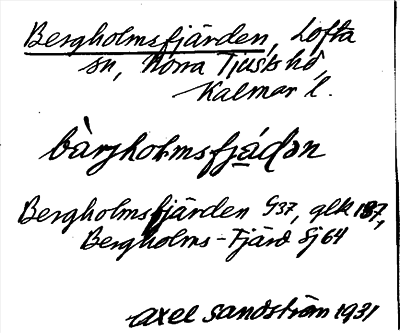 Bergholmsfjärden, Lofta
sn, Norra Tjusts hd,
Kalmar l.
bàrjholmsfjá̱dən
Bergholmsfjärden G37, glk 187,
Bergholms-Fjärd Sj 64
Axel Sandström 1931